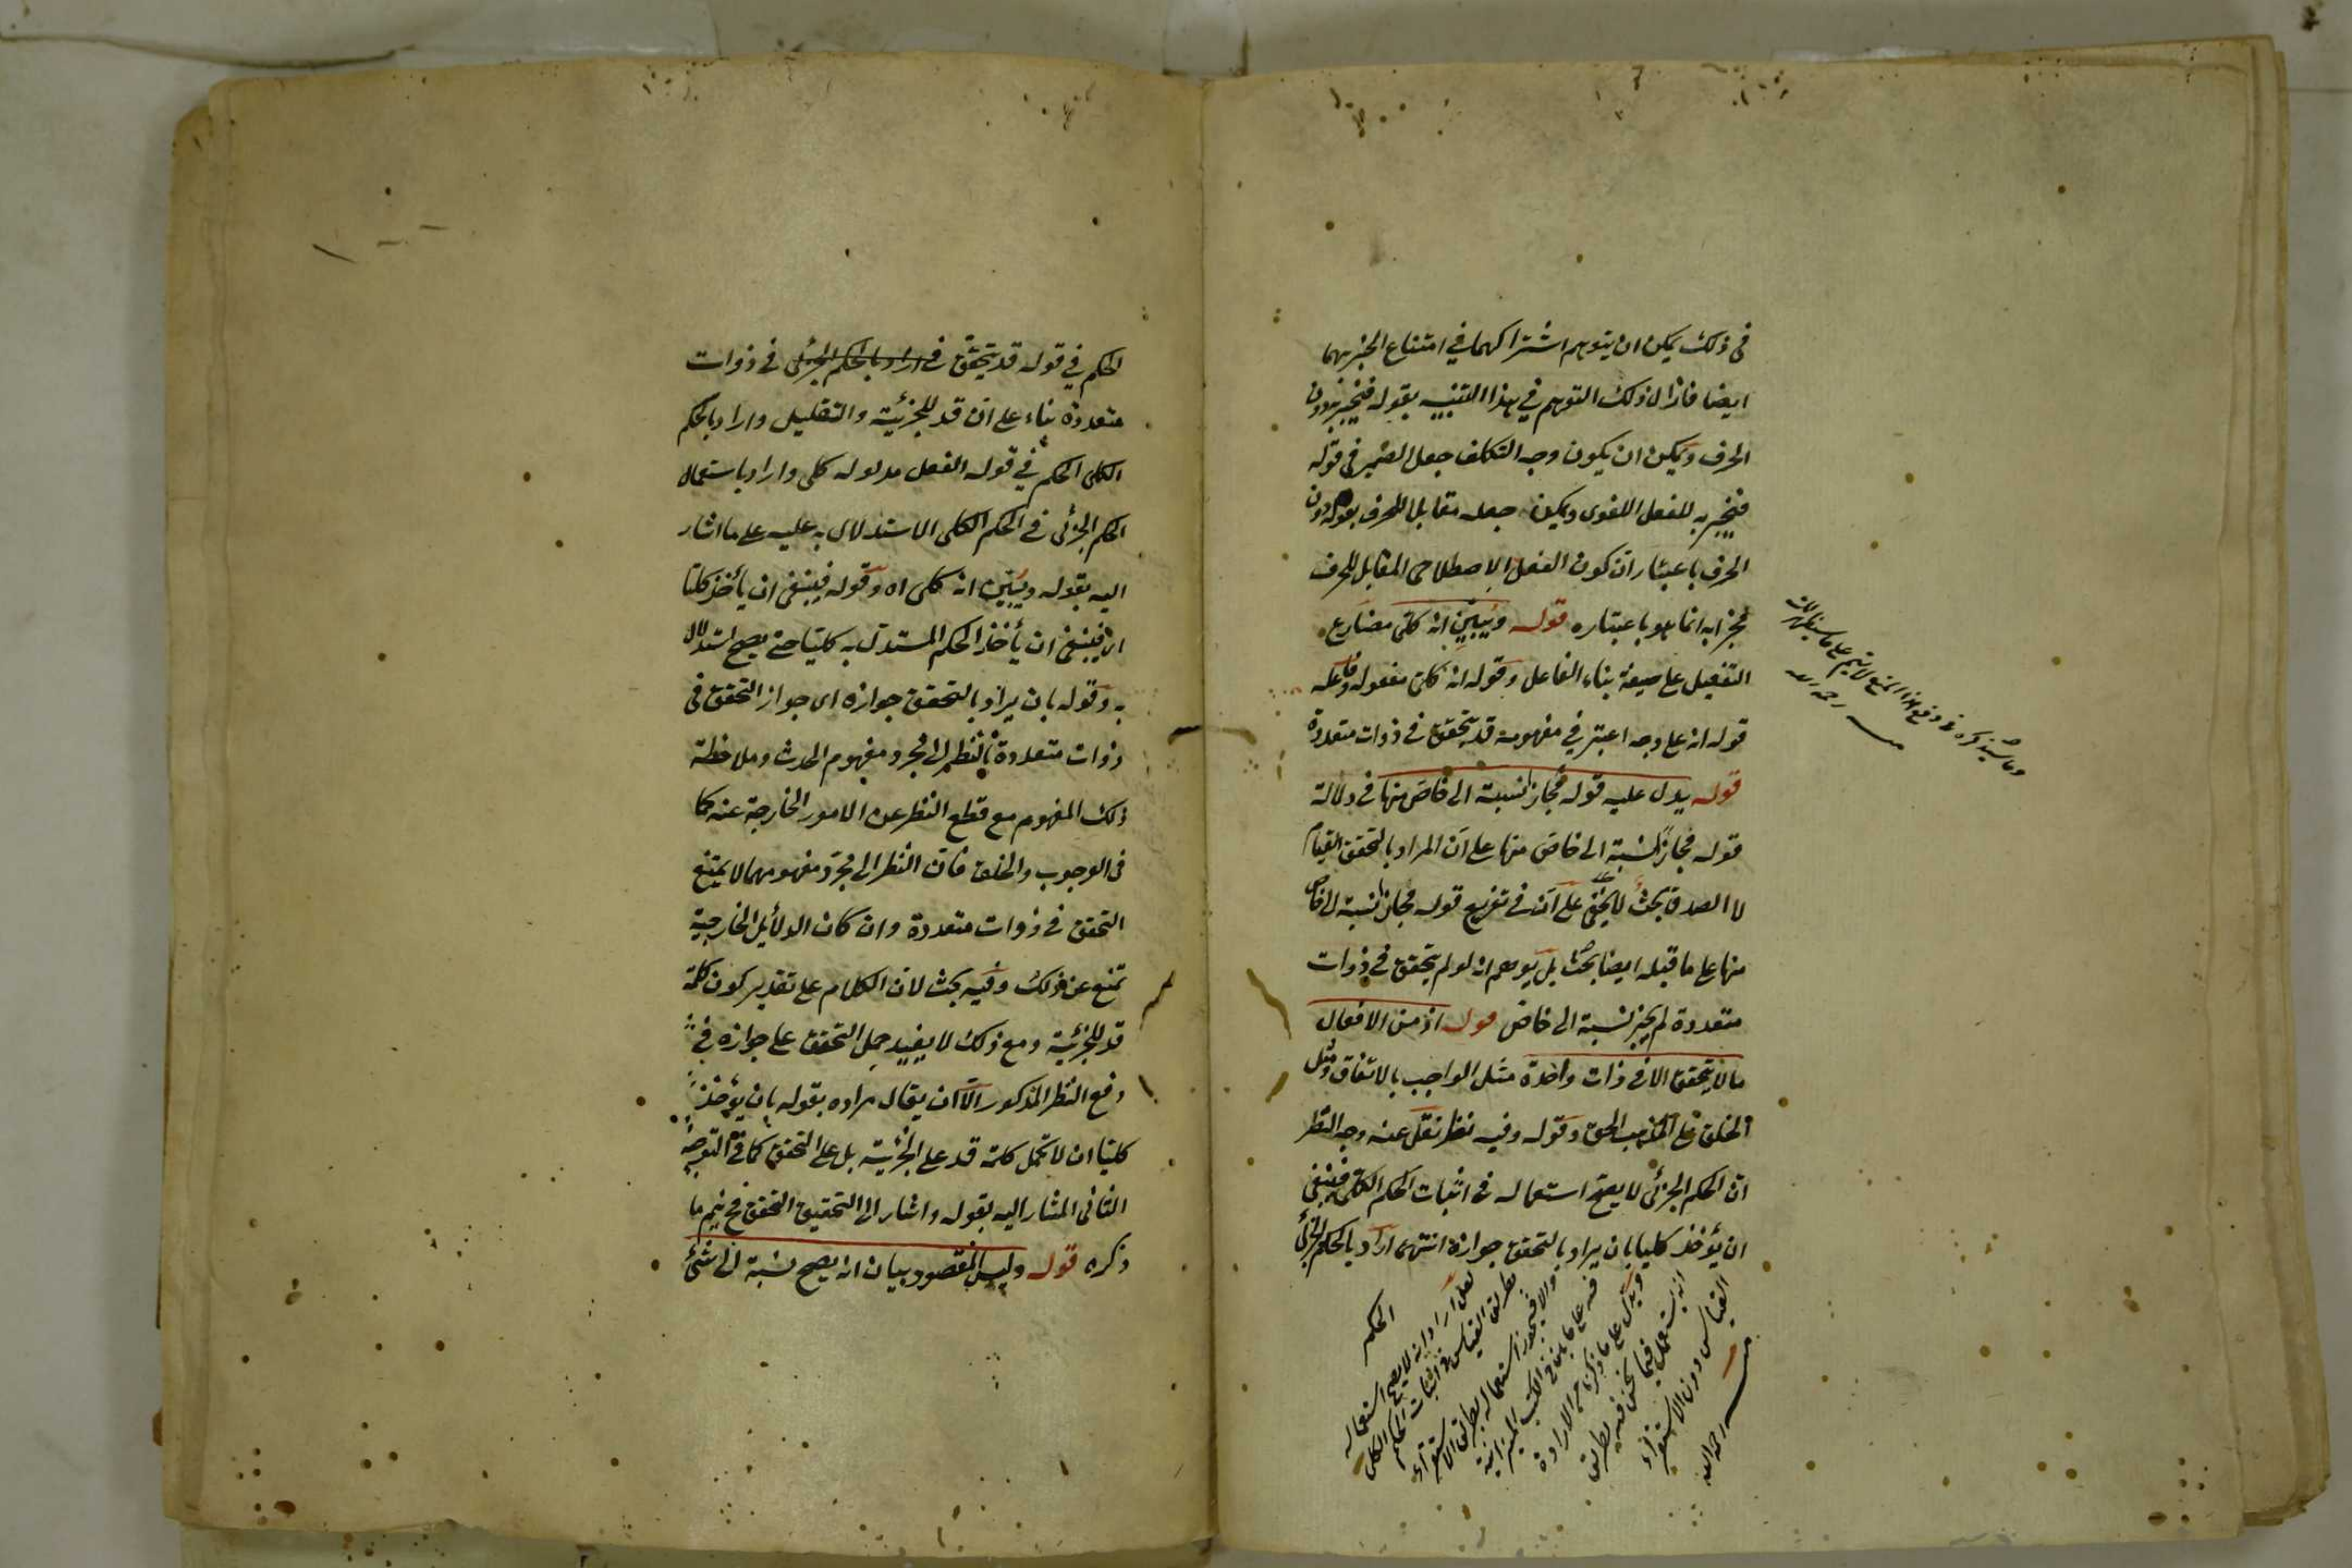 فى ذلك يمكن ان يتوهم اشتراكهما في امتناع الخبر بهما
ايضا فازال ذلك التوهم في هذا التنبيه بقوله فيخبر به دون
الحرف ويمكن ان يكون وجه التكلف جعل الضمير فى قوله
فيخبر به للفعل اللغوى ويمكن جعله مقابلا للحرف بقوله دون
الحرف باعتبار ان كون الفعل الاصطلاحى المقابل للحرف
مخبرا به انما هو باعتباره قوله ويبين انه كلى مضارع
التفعيل على صيغة بناء الفاعل وقوله انه كلى مفعوله وفاعله
قوله انه على وجه اعتبر في مفهومه قد يتحقق فى ذوات متعددة
قوله يدل عليه قوله فجاز نسبته الى خاص منها فى دلالة
قوله فجاز نسبته الى خاص منها على ان المراد بالتحقق القيام
لا الصدق بحث لا يخفى على ان فى تفريع قوله فجاز نسبته الى خاص
منها على ما قبله ايضا بحث بل يوهم انه لو لم يتحقق فى ذوات
متعددة لم يجز نسبته الى خاص قوله اذ من الافعال
ما لا يتحقق الا فى ذات واحدة مثل الواجب بالاتفاق ومثل
الخلق على المذهب الحق وقوله وفيه نظر نقل عنه وجه النظر
ان الحكم الجزئى لا يصح استعماله فى اثبات الحكم الكلى فينبغى
ان يؤخذ كليا بان يراد بالتحقق جوازه انتهى اراد بالحكم الجزئى
الحكم
لعله اراد انه لا يصح استعماله
بطريق القياس فى اثبات الحكم الكلى
والا فيجوز استعماله بطريق الاستقراء
فيه على ما بين فى الكتب الميزانية
ويدل على ما ذكرنا من الارادة
انه يستعمل فيما نحن فيه بطريق
القياس دون الاستقراء
منه رحمه الله
الحكم في قوله قد يتحقق فى اراد بالحكم الجزئى فى ذوات
متعددة بناء على ان قد للجزئية والتقليل واراد بالحكم
الكلى الحكم في قوله الفعل مدلوله كلى واراد باستعمال
الحكم الجزئى فى الحكم الكلى الاستدلال به عليه على ما اشار
اليه بقوله ويبين انه كلى اه وقوله فينبغى ان يأخذ كليا
اى فينبغى ان يأخذ الحكم المستدل به كليا حتى يصح استدلال
به وقوله بان يراد بالتحقق جوازه اى جواز التحقق فى
ذوات متعددة بالنظر الى مجرد مفهوم الحدث وملاحظة
ذلك المفهوم مع قطع النظر عن الامور الخارجة عنه كما
فى الوجوب والخلق فان النظر الى مجرد مفهومهما لا يمنع
التحقق فى ذوات متعددة وان كان الدلائل الخارجية
تمنع عن ذلك وفيه بحث لان الكلام على تقدير كون كلمة
قد للجزئية ومع ذلك لا يفيد حمل التحقق على جوازه في
دفع النظر المذكور الا ان يقال مراده بقوله بان يؤخذ
كليا ان لا تحمل كلمة قد على الجزئية بل على التحقق كما فى التوجيه
الثانى المشار اليه بقوله واشار الى التحقيق التحقق فح يتم ما
ذكره قوله وليس المقصود بيان انه يصح نسبته الى شئ